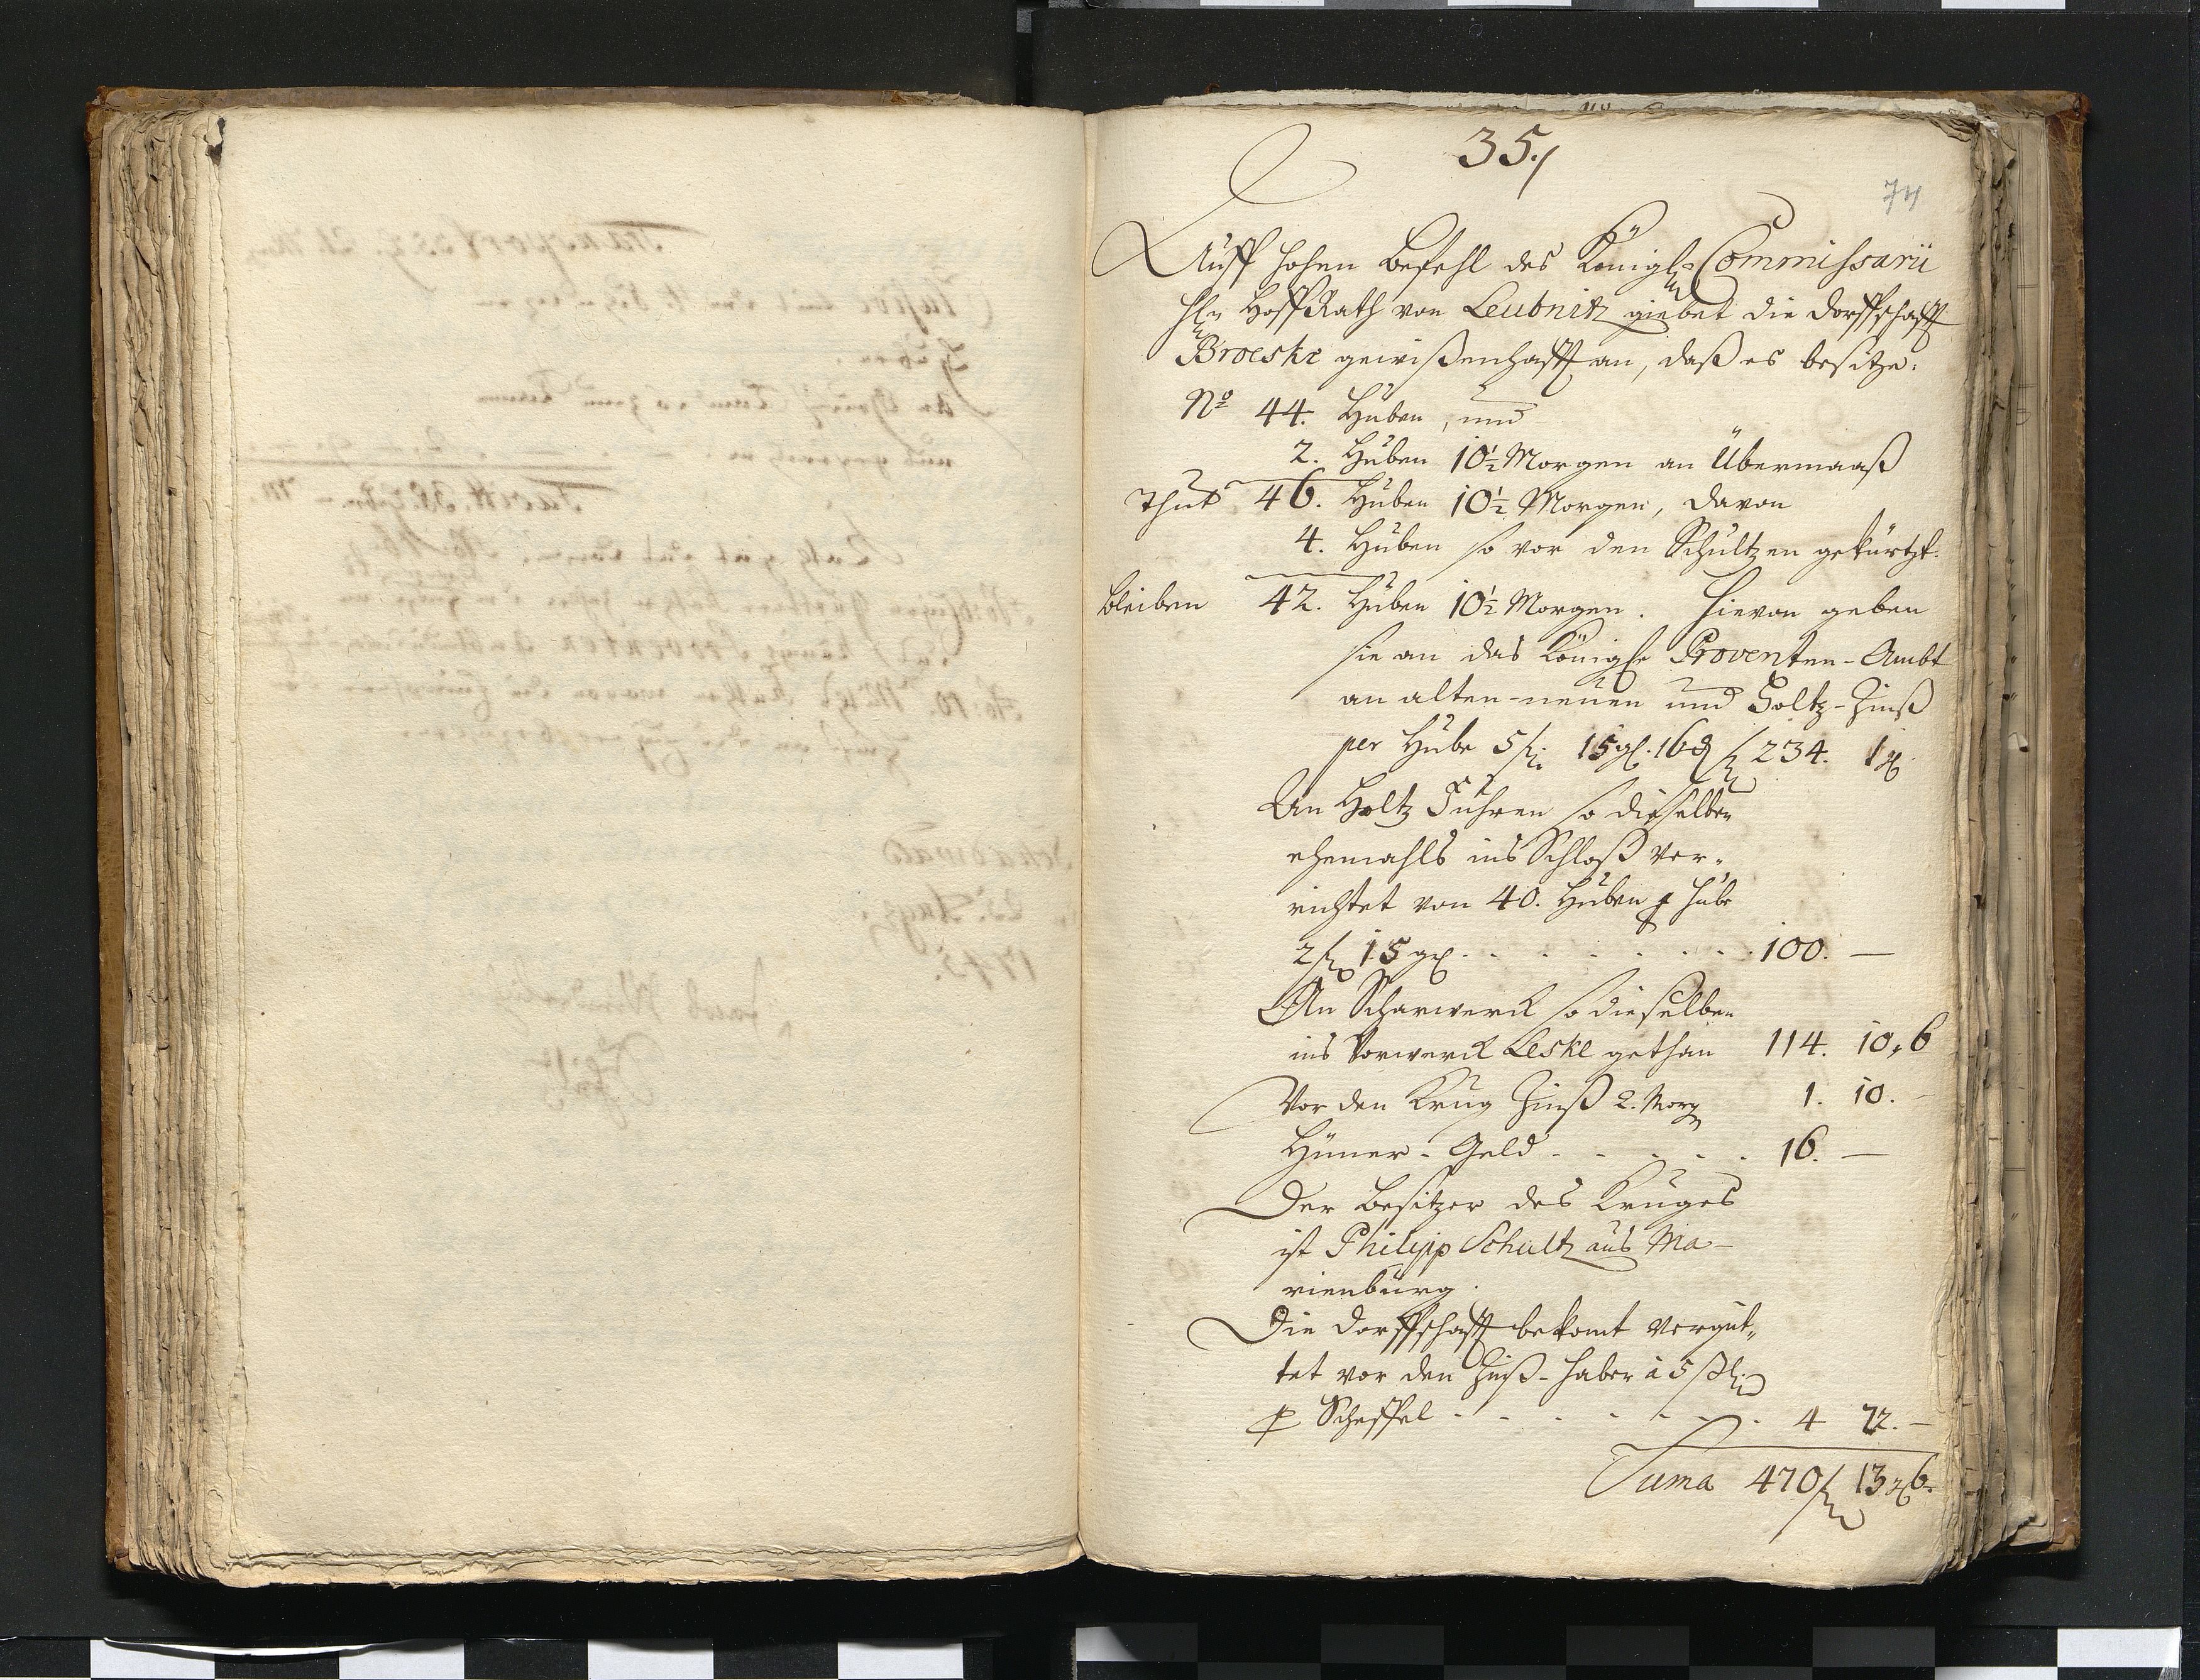 35./
74
Auff hohen Befehl des Königl: Commissarii
Hln Hoff Rath von Leubnitz giebet die Dorffschafft
Broeske gewißenhafft an, daß es besitze.
No 44. Huben, und
2. Huben 10½ Morgen an Übermaaß
Thut 46. Huben 10½ Morgen, davon
4. Huben so vor den Schultzen gekürtzt.
bleiben 42. Huben 10½ Morgen. Hievon geben
sie an das Königle Proventen-Ambt
an alten-neuen und Holtz-Zinß
per Hube 5 fl: 15 gl. 16 ₰ fl 234. 1 gl
An Holtz Fuhren so dieselben
ehemahls ins Schloß ver-
richtet von 40. Huben p Hube
2 fl 15 gl. . . . . . . . 100. —
An Scharwerck so dieselben
ins Vorwerck Leske gethan 114. 10. 6
Vor den Krug Zinß 2. Morg 1. 10. -
Hüner-Geld - - - - - 16. —
Der Besitzer des Kruges
ist Philipp Schultz aus Ma-
rienburg.
Die Dorffschafft bekomt vergüt-
tet vor den Zinß-Haber à 5 ßl:
p Scheffel - - - - - - - 4 22. -
Suma 470 fl 13 gl 6.